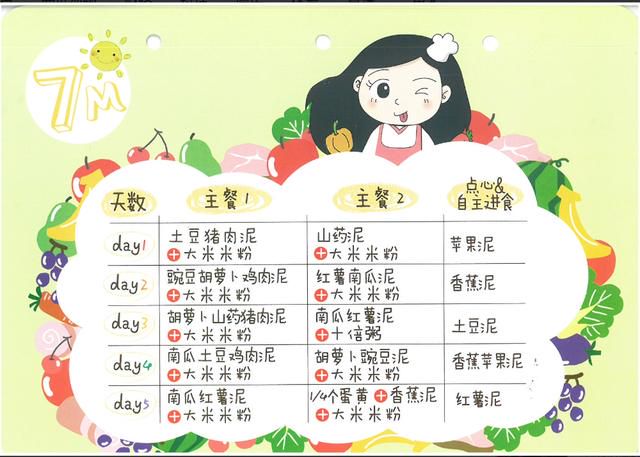 7M
天数 主餐1 主餐2 点心&
自主进食
day1 土豆猪肉泥 山药泥 苹果泥
+大米米粉 +大米米粉
day2 豌豆胡萝卜鸡肉泥 红薯南瓜泥 香蕉泥
+大米米粉 +大米米粉
day3 胡萝卜山药猪肉泥 南瓜红薯泥 土豆泥
+大米米粉 +十倍粥
day4 南瓜土豆鸡肉泥 胡萝卜豌豆泥 香蕉苹果泥
+大米米粉 +大米米粉
day5 南瓜红薯泥 1/4个蛋黄+香蕉泥 红薯泥
+大米米粉 +大米米粉